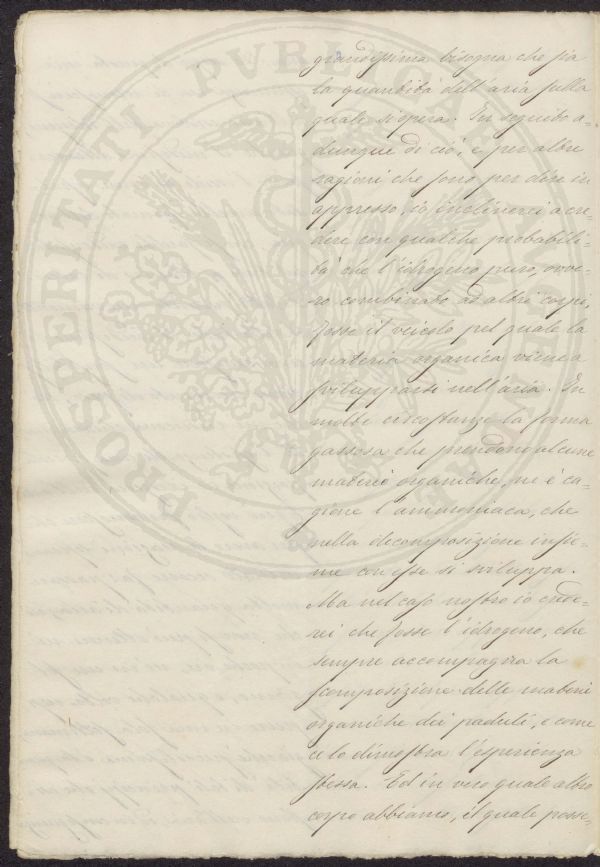 grandissima bisogna che sia
la quantità dell'aria sulla
quale si opera. In seguito a=
dunque di ciò, e per altre
ragioni che sono per dire in
appresso, io inclinerei a cre=
dere con qualche probabili=
tà che l'idrogeno puro, ovve=
ro combinato ad altri corpi,
fosse il veicolo pel quale la
materia organica viene a
svilupparsi nell'aria. In
molte circostanze la forma
gassosa che prendono alcune
materie organiche, ne è ca=
gione l'ammoniaca, che
nella decomposizione insie=
me con esse si sviluppa.
Ma nel caso nostro io crede=
rei che fosse l'idrogeno, che
sempre accompagna la
scomposizione delle materie
organiche dei paduli, e come
ce lo dimostra l'esperienza
stessa. Ed in vero quale altro
corpo abbiamo, il quale posse=
PROSPERITATI PVBLICAE AVGENDAE